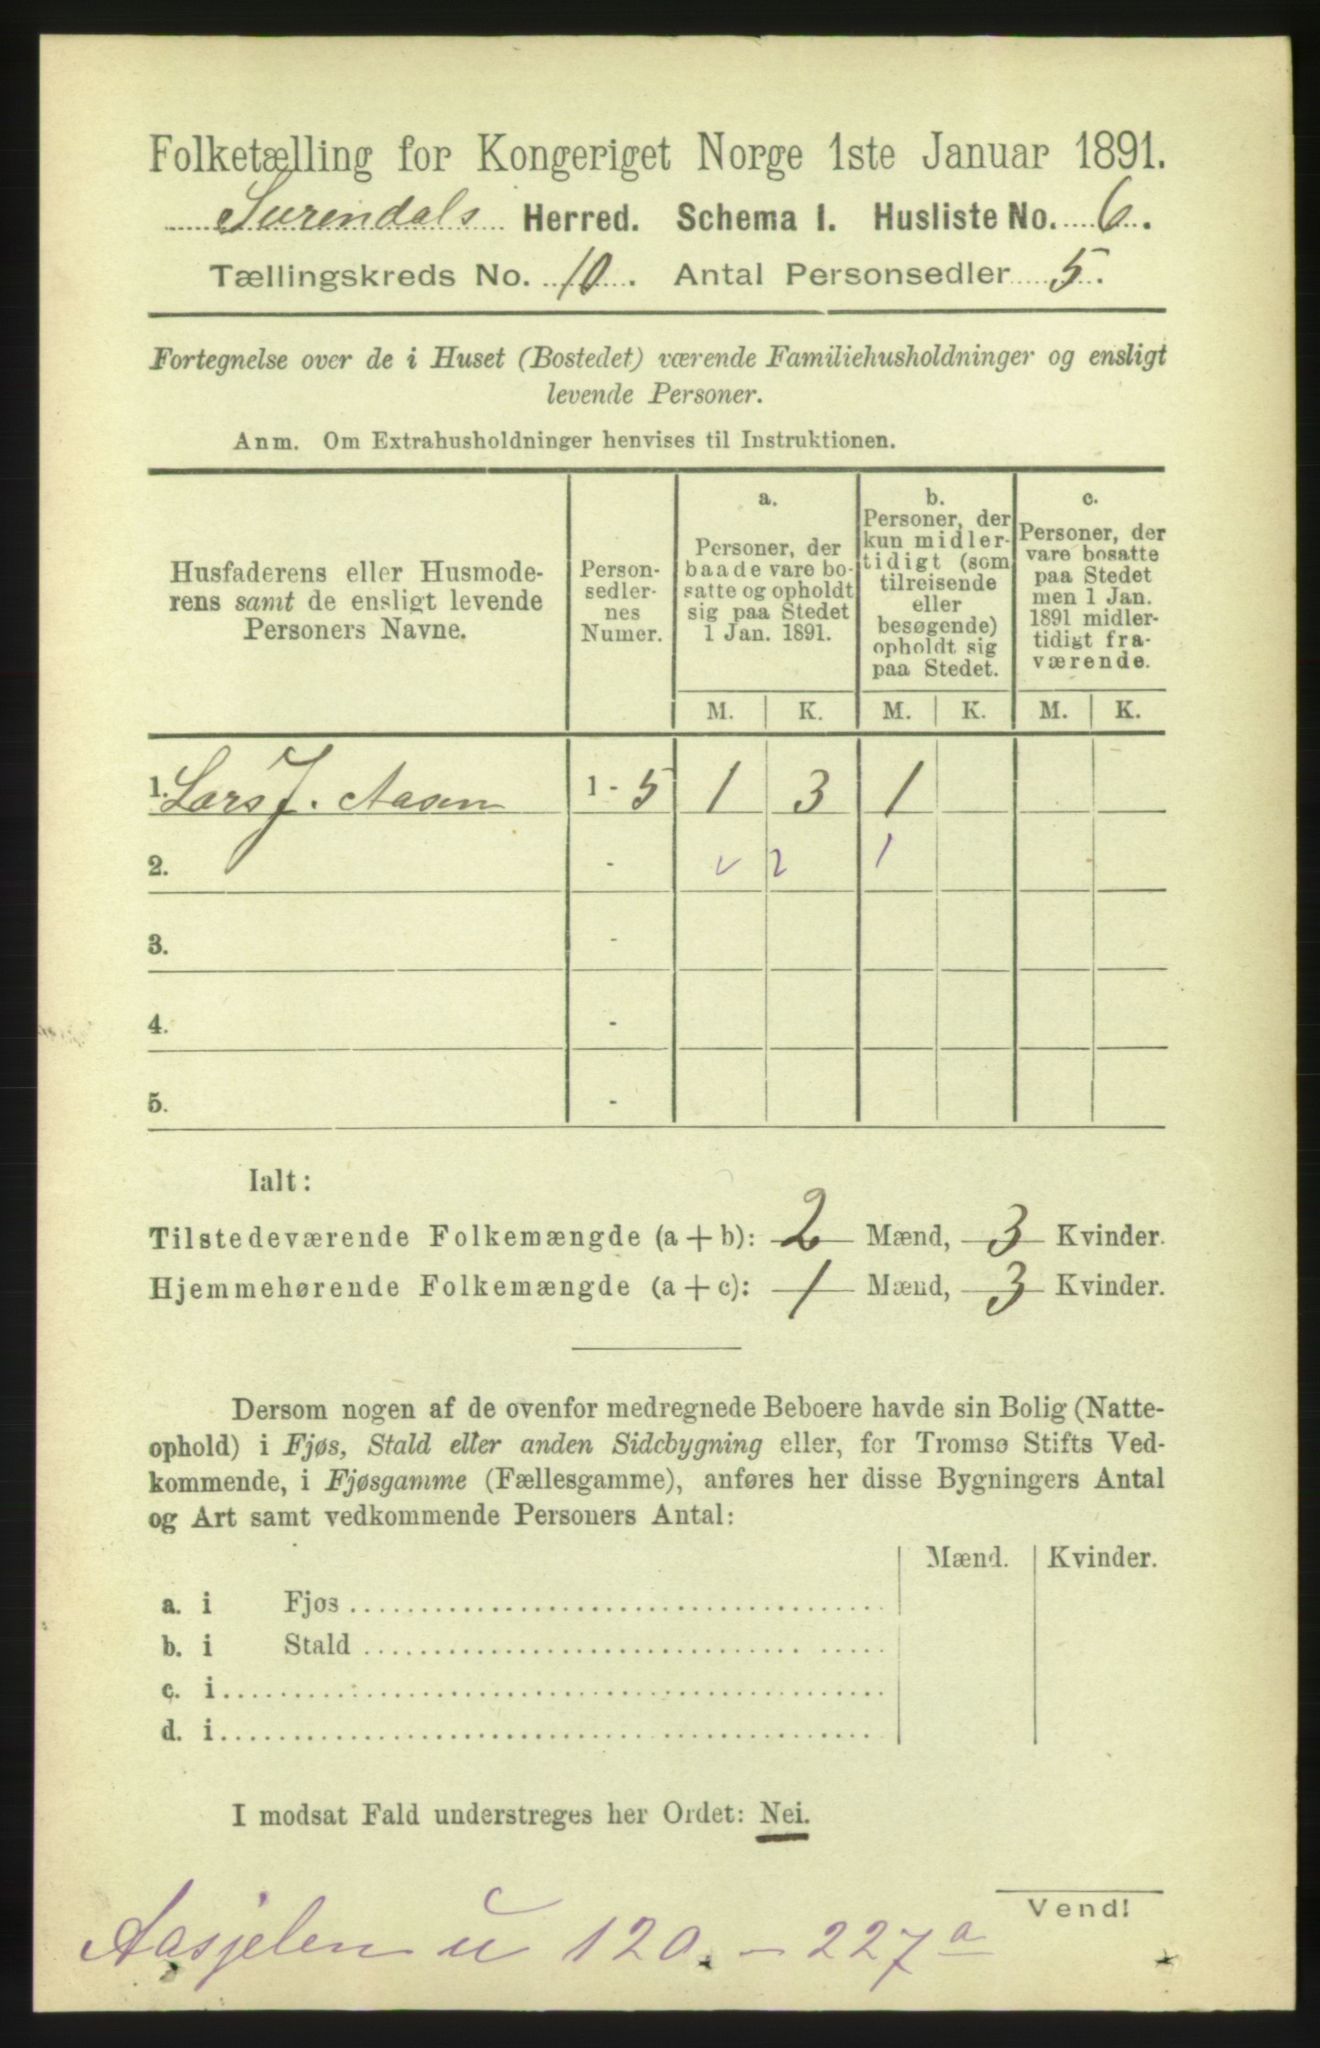 Folketælling for Kongeriget Norge 1ste Januar 1891.
Surendals Herred. Schema 1. Husliste No. 6.
Tællingskreds No. 10. Antal Personsedler 5.
Fortegnelse over de i Huset (Bostedet) værende Familiehusholdninger og ensligt
levende Personer.
Anm. Om Extrahusholdninger henvises til Instruktionen.
Husfaderens eller Husmode-
rens samt de ensligt levende
Personers Navne.
Person-
sedler-
nes
Numer.
a.
Personer, der
baade vare bo-
satte og opholdt
sig paa Stedet
1 Jan. 1891.
b.
Personer, der
kun midler-
tidigt (som
tilreisende
eller
besøgende)
opholdt sig
paa Stedet.
c.
Personer, der
vare bosatte
paa Stedet
men 1 Jan.
1891 midler-
tidigt fra-
værende.
M. K. M. K. M. K.
1. Lars J. Aasen 1 - 5 1 3 1
2. - v 2 1
3. -
4. -
5. -
Ialt:
Tilstedeværende Folkemængde (a + b): 2 Mænd, 3 Kvinder.
Hjemmehørende Folkemængde (a + c): 1 Mænd, 3 Kvinder.
Dersom nogen af de ovenfor medregnede Beboere havde sin Bolig (Natte-
ophold) i Fjøs, Stald eller anden Sidebygning eller, for Tromsø Stifts Ved-
kommende, i Fjøsgamme (Fællesgamme), anføres her disse Bygningers Antal
og Art samt vedkommende Personers Antal:
Mænd. Kvinder.
a. i Fjøs
b. i Stald
c. i
d. i
I modsat Fald understreges her Ordet: Nei.
Vend!
Aasjelen u 120. - 227a